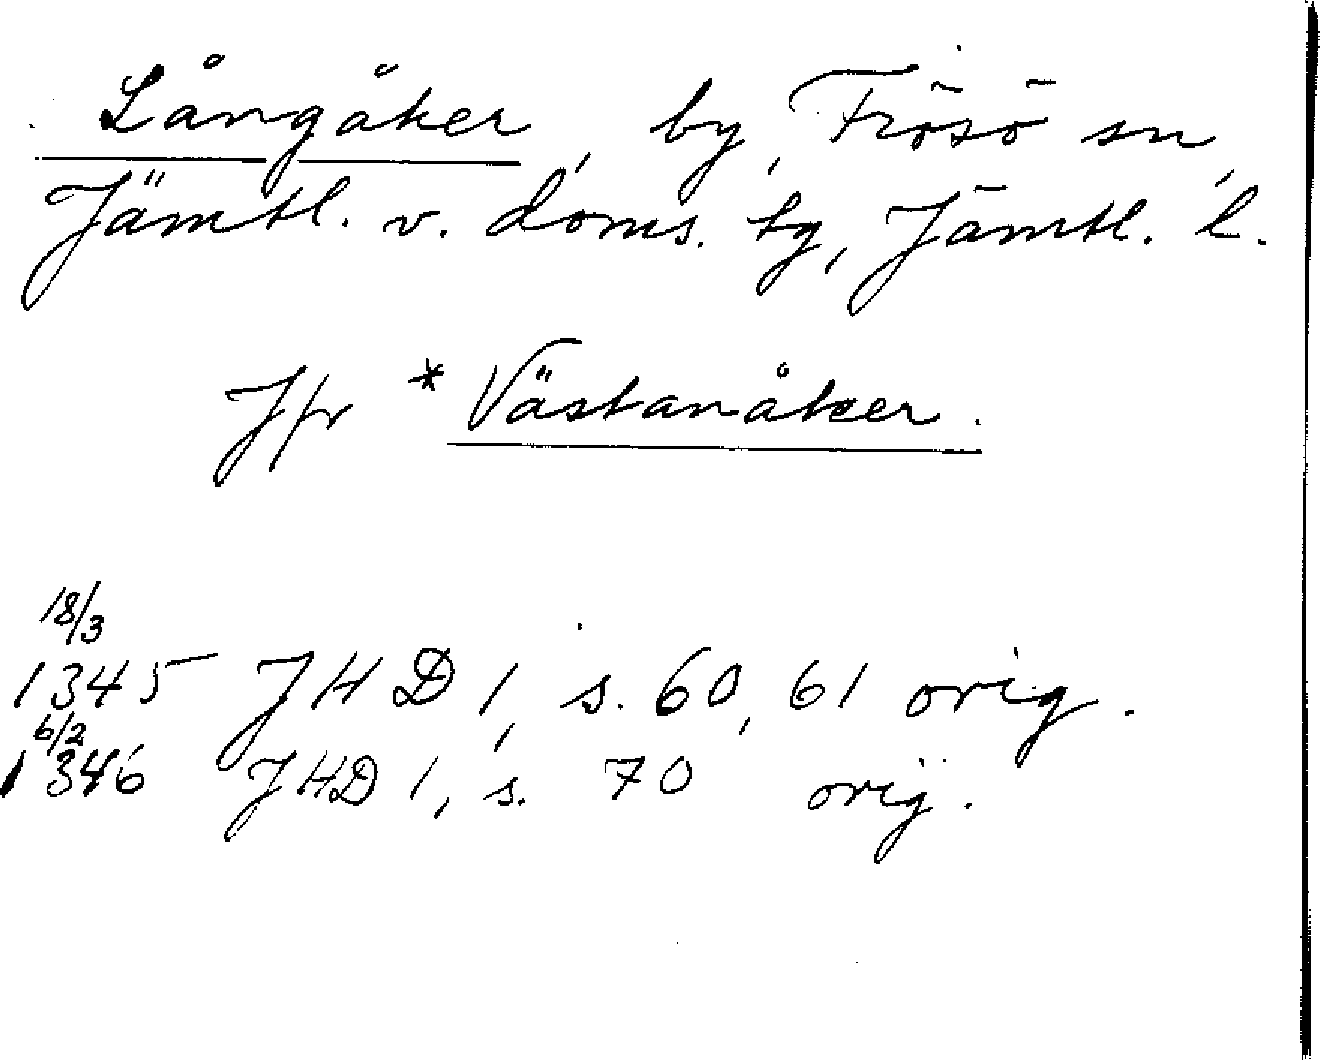 Långåker, by, Frösö sn,
Jämtl. v. doms. tg, Jämtl. l.
Jfr *Västanåker.
18/3
1345 JHD 1, s. 60, 61 orig.
6/2
1346 JHD 1, s. 70 orig.